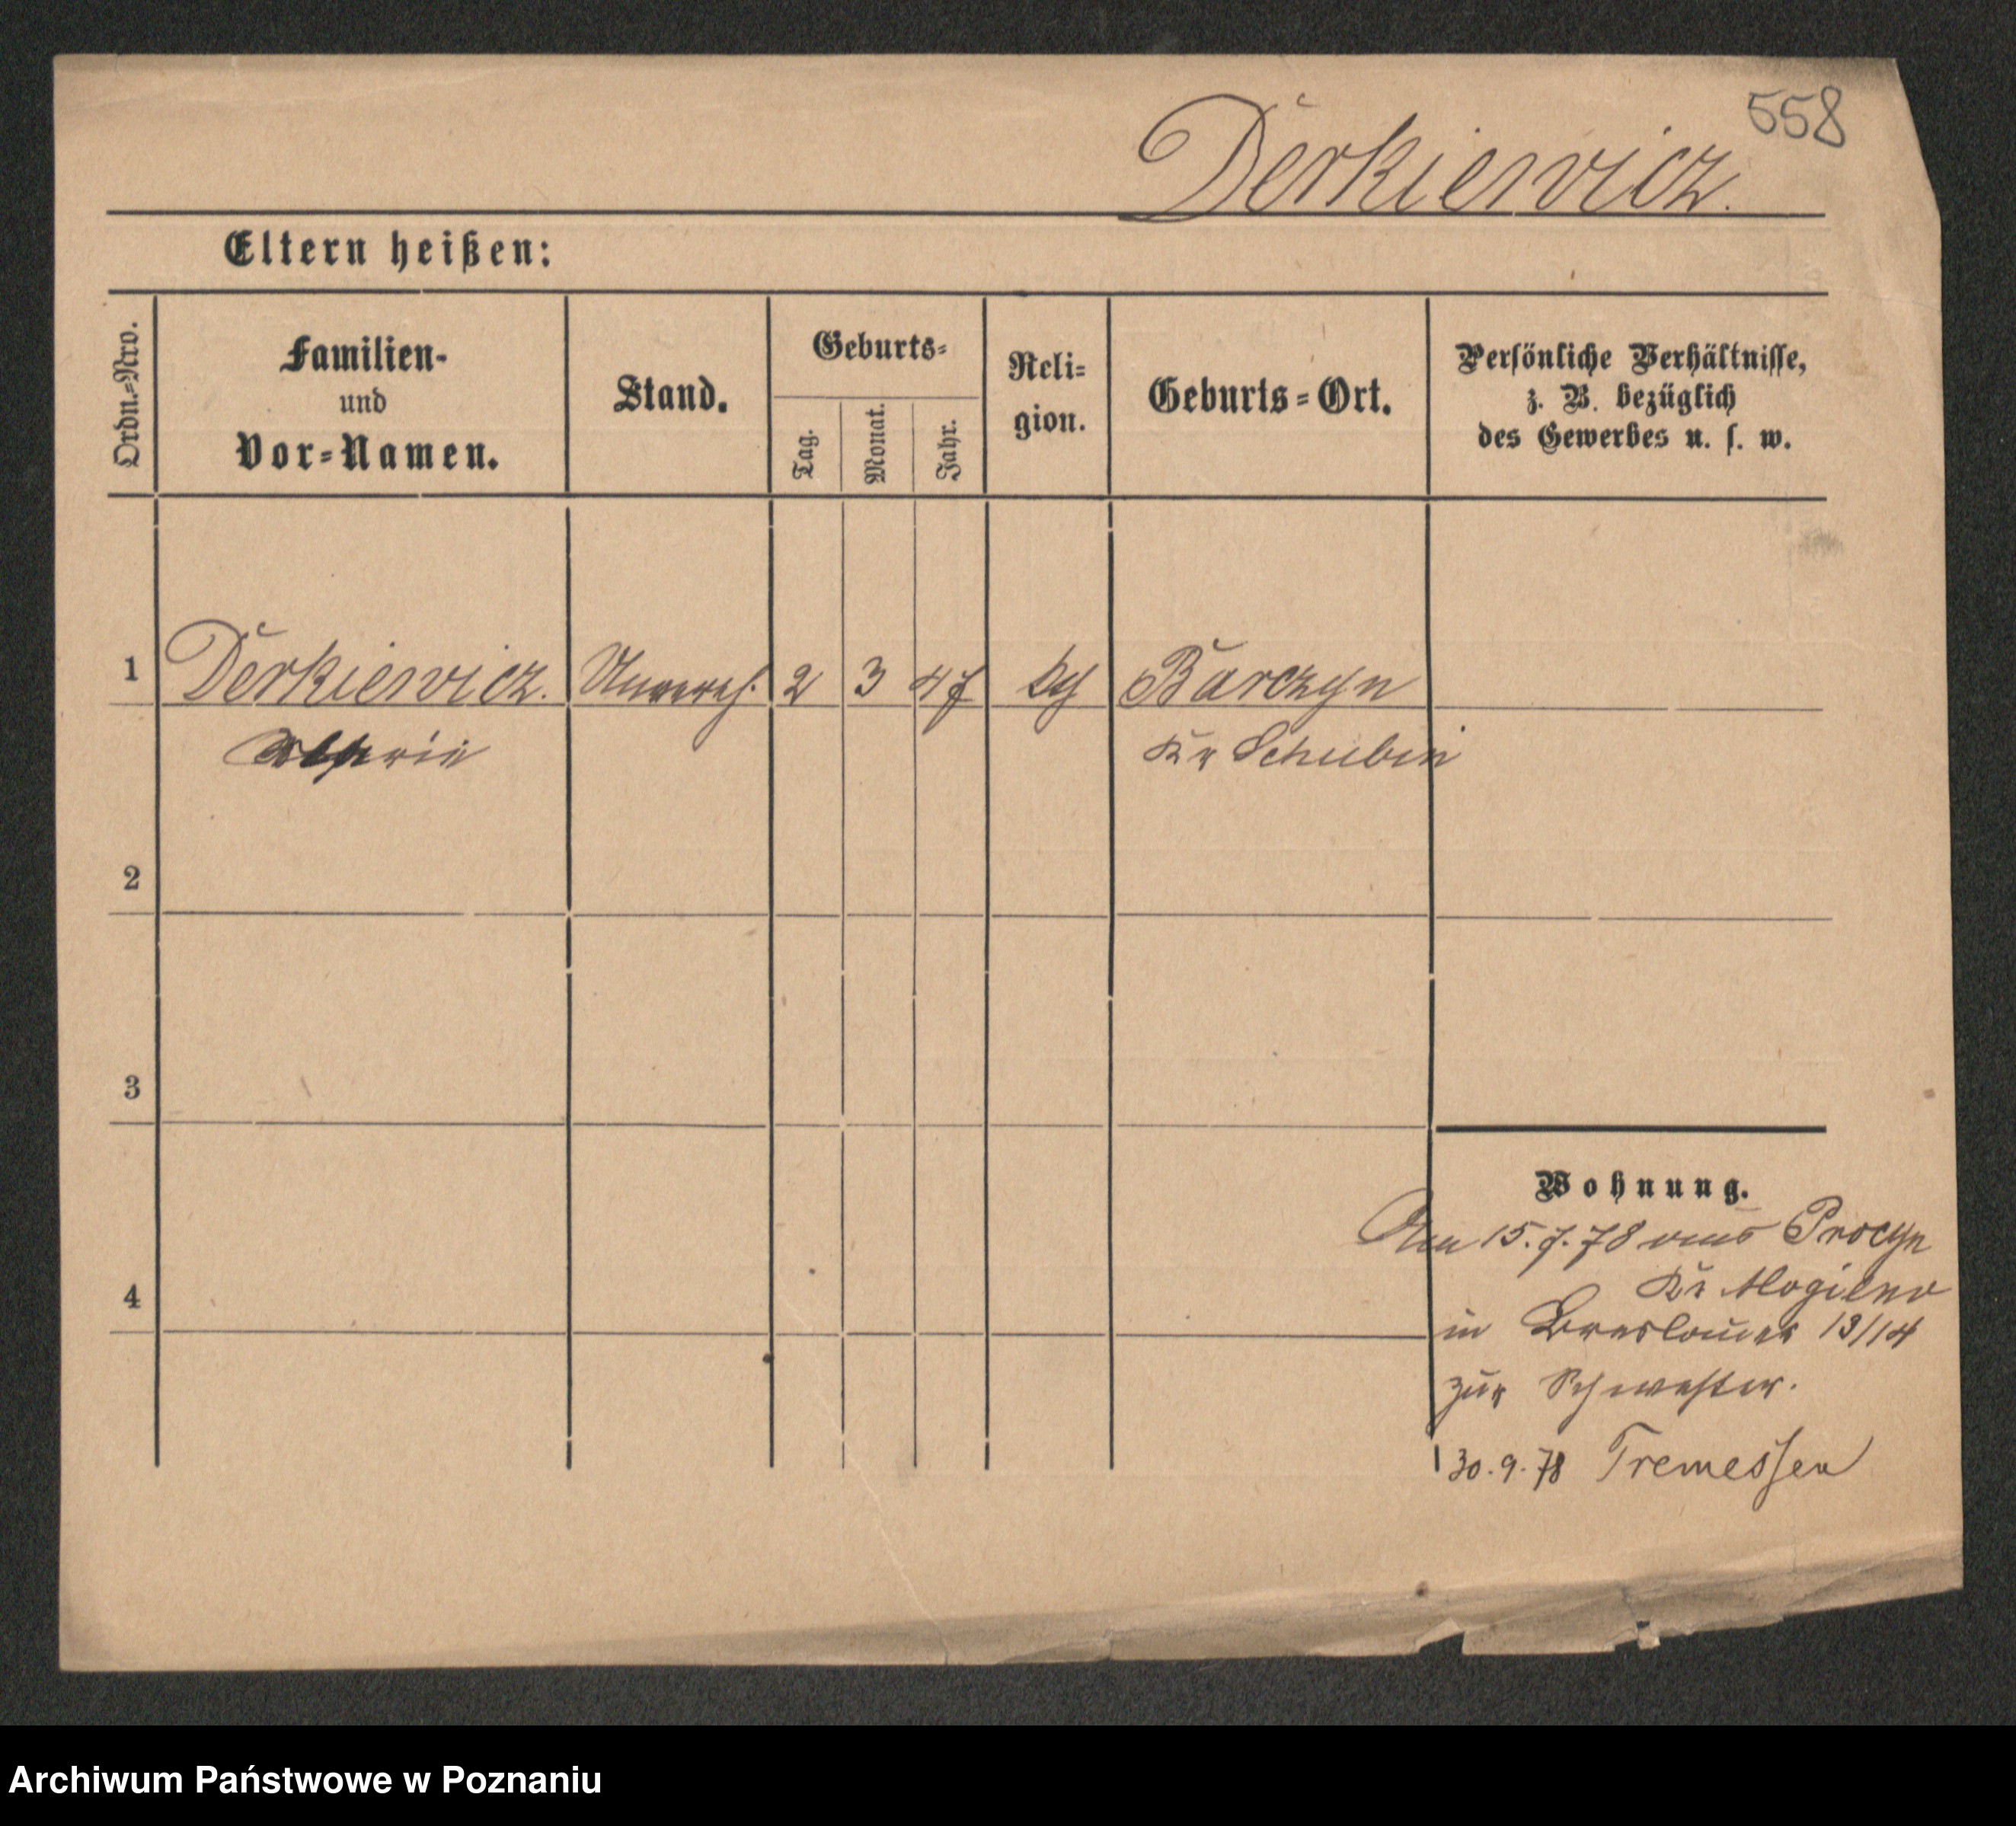 558
Derkiewicz.
Eltern heißen:
Ordn.=Nro.
Familien-
und
Vor=Namen.
Stand.
Geburts=
Tag.
Monat.
Jahr.
Reli=
gion.
Geburts=Ort.
Persönliche Verhältnisse,
z. B. bezüglich
des Gewerbes u. s. w.
1 Derkiewicz. 2 3 47 Barczyn
Kr Schubin
2
3
4
Wohnung.
15.7.78 aus Procyn
Kr Mogilno
in Breslauer 13/14
zur Schwester.
30.9.78 Tremessen
Archiwum Państwowe w Poznaniu